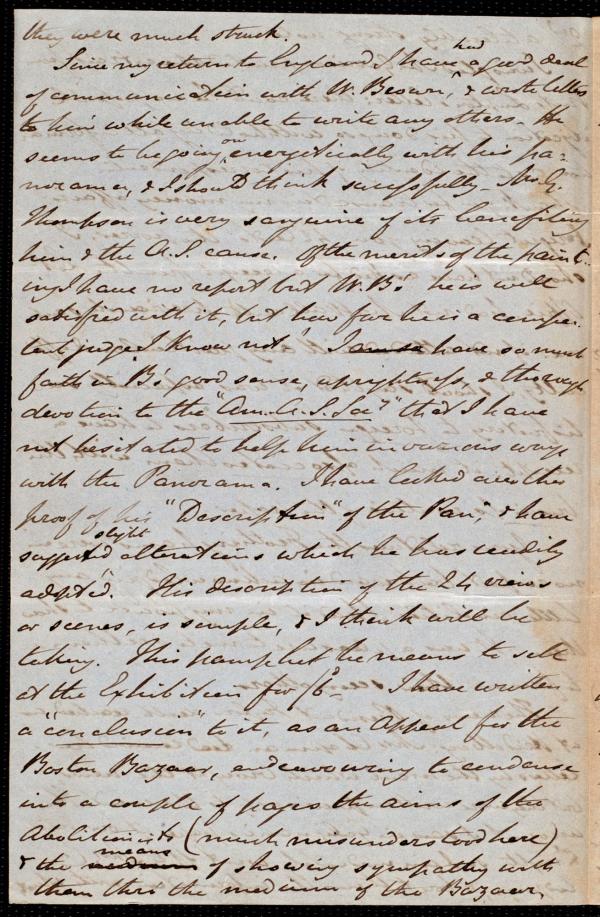 they were much struck.
Since my return to England I have had a good deal
of communication with W. Brown, & wrote letters
to him while unable to write any others. He
seems to be going on energetically with his pa-
norama, & I should think successfully. Mrs G.
Thompson is very sanguine of its benefiting
him & the A.S. cause. Of the merits of the paint-
ing I have no report but W. B's. he is well
satisfied with it, but how far he is a compe-
tent judge I know not! I have so much
faith in B's good sense, uprightness, & thorough
devotion to the "Am. A. S. Socy" that I have
not hesitated to help him in various ways
with the Panorama. I have looked over the
proof of his "Description" of the Pan", & have
suggested slight alterations which he has readily
adopted. His description of the 24 views
or scenes, is simple, & I think will be
taking. This pamphlet he means to sell
at the Exhibition for /6d - I have written
a "conclusion" to it, as an Appeal for the
Boston Bazaar, endeavouring to condense
into a couple of pages the aims of the
Abolitionists (much misunderstood here)
& the means of showing sympathy with
them thro' the medium of the Bazaar.